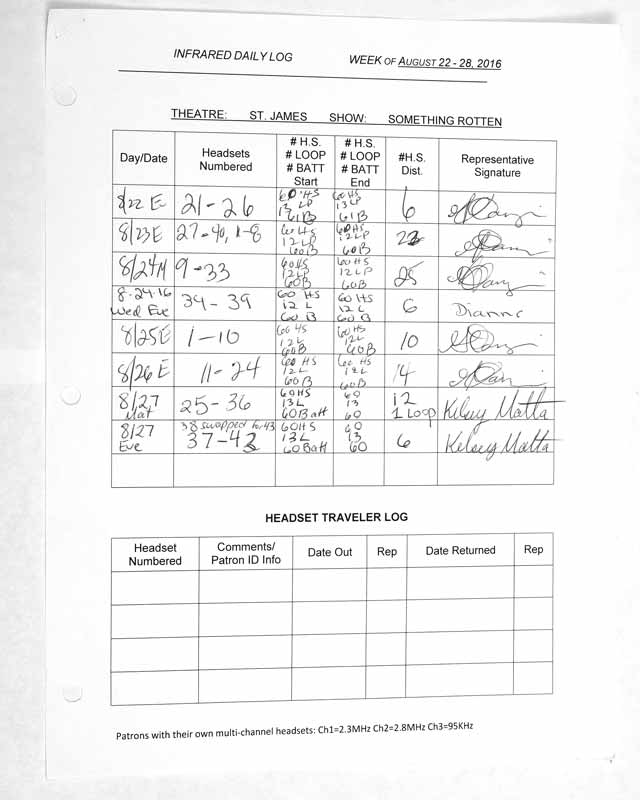 INFRARED DAILY LOG WEEK OF AUGUST 22 - 28, 2016
THEATRE: ST. JAMES SHOW: SOMETHING ROTTEN
Day/Date Headsets Numbered # H.S. # LOOP # BATT Start # H.S. # LOOP # BATT End #H.S. Dist. Representative Signature
8/22 E 21-26 60 HS 13 LP 61B 60HS 13LP 61B 6
8/23E 27-40, 1-8 60HS 12LP 60B 60HS 12LP 60B 22
8/24M 9-33 60HS 12LP 60B 60HS 12LP 60B 25
8-24-16 Wed Eve 34-39 60 HS 12 L 60 B 60 HS 12 L 60 B 6 Dianne
8/25E 1-10 60 HS 12L 60B 60 HS 12L 60B 10
8/26E 11-24 60 HS 12L 60B 60 HS 12L 60B 14
8/27 Mat 25-36 60HS 13L 60Batt 60 13 60 12 1 Loop Kelsey Matta
8/27 Eve 38 swapped for 43 37-43 60HS 13L 60Batt 60 13 60 6 Kelsey Matta
HEADSET TRAVELER LOG
Headset Numbered Comments/ Patron ID Info Date Out Rep Date Returned Rep
Patrons with their own multi-channel headsets: Ch1=2.3MHz Ch2=2.8MHz Ch3=95KHz